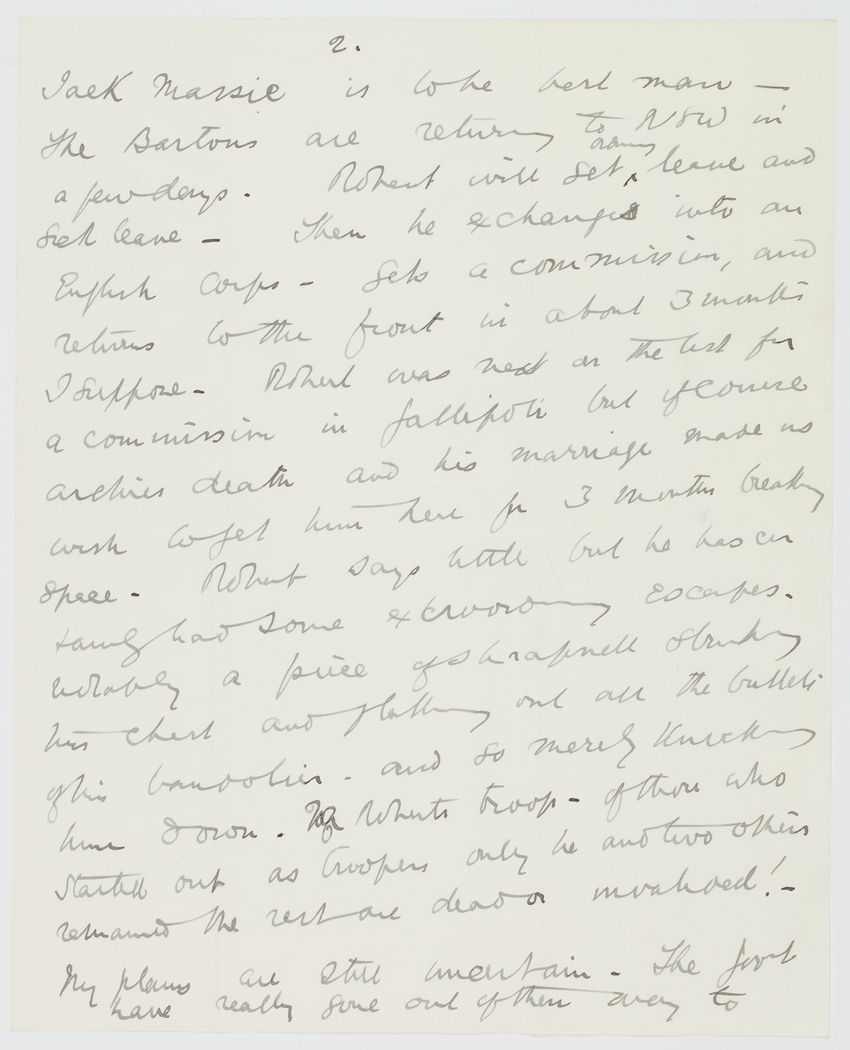 2.
Jack Massie is to be best man —
The Bartons are returning to NSW in
a few days. Robert will get ordinary leave and
sick leave — Then he exchanges into an
English Corps — gets a commission, and
returns to the front in about 3 months
I suppose — Robert was next on the list for
a commission in Gallipoli but of course
archies death and his marriage made us
wish to get him here for 3 months breathing
space — Robert says little but he has cer
tainly had some extraordinary escapes.
notably a piece of shrapnell striking
his chest and flattening out all the bullets
of his bandolier — and so merely knocking
him down. Of Roberts troop — of those who
started out as troopers only he and two others
remained the rest are dead or invalided! —
My plans are still uncertain — The Govt
have really gone out of their way to